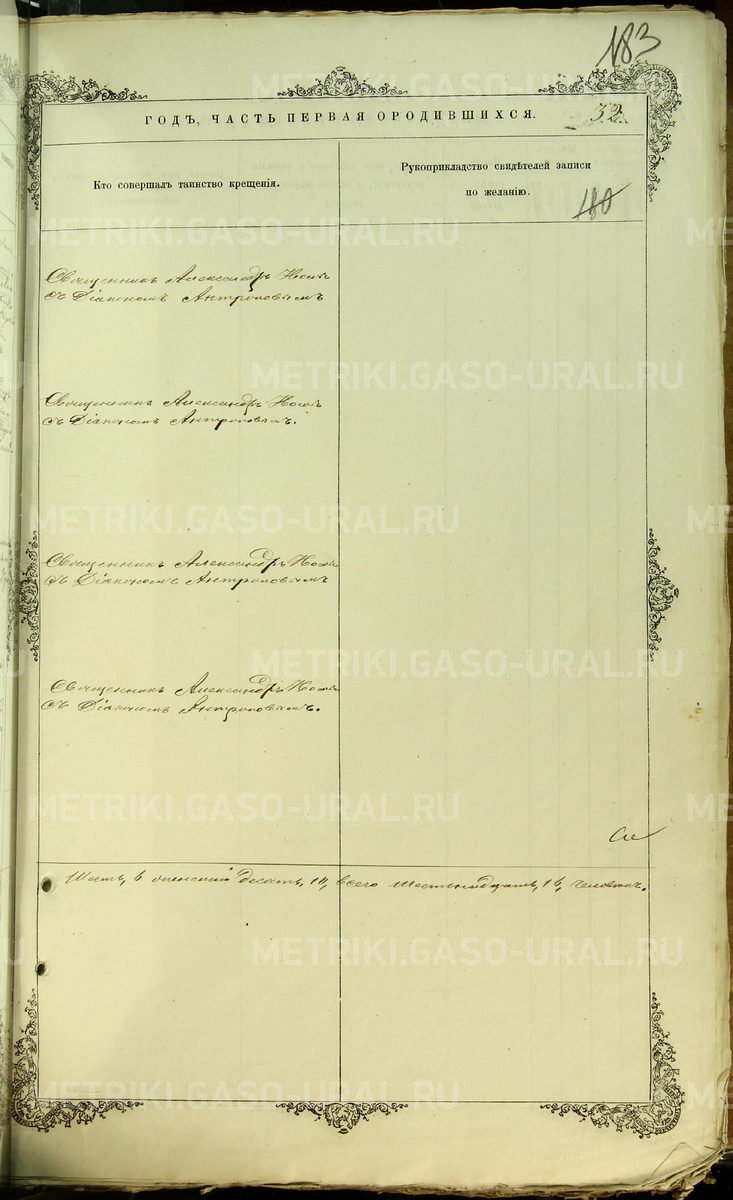 183
ГОДЪ, ЧАСТЬ ПЕРВАЯ О РОДИВШИХСЯ.
32.
Кто совершалъ таинство крещенія.
Рукоприкладство свидѣтелей записи
по желанію.
180
Священникъ Александръ
съ Діакономъ Антроповымъ
Священникъ Александръ
съ Діакономъ Антроповымъ.
Священникъ Александръ
съ Діакономъ Антроповымъ
Священникъ Александръ
съ Діакономъ Антроповымъ.
Шесть, 6 женскаго десять, 10, всего шестнадцать, 16, человѣкъ.
METRIKI.GASO-URAL.RU